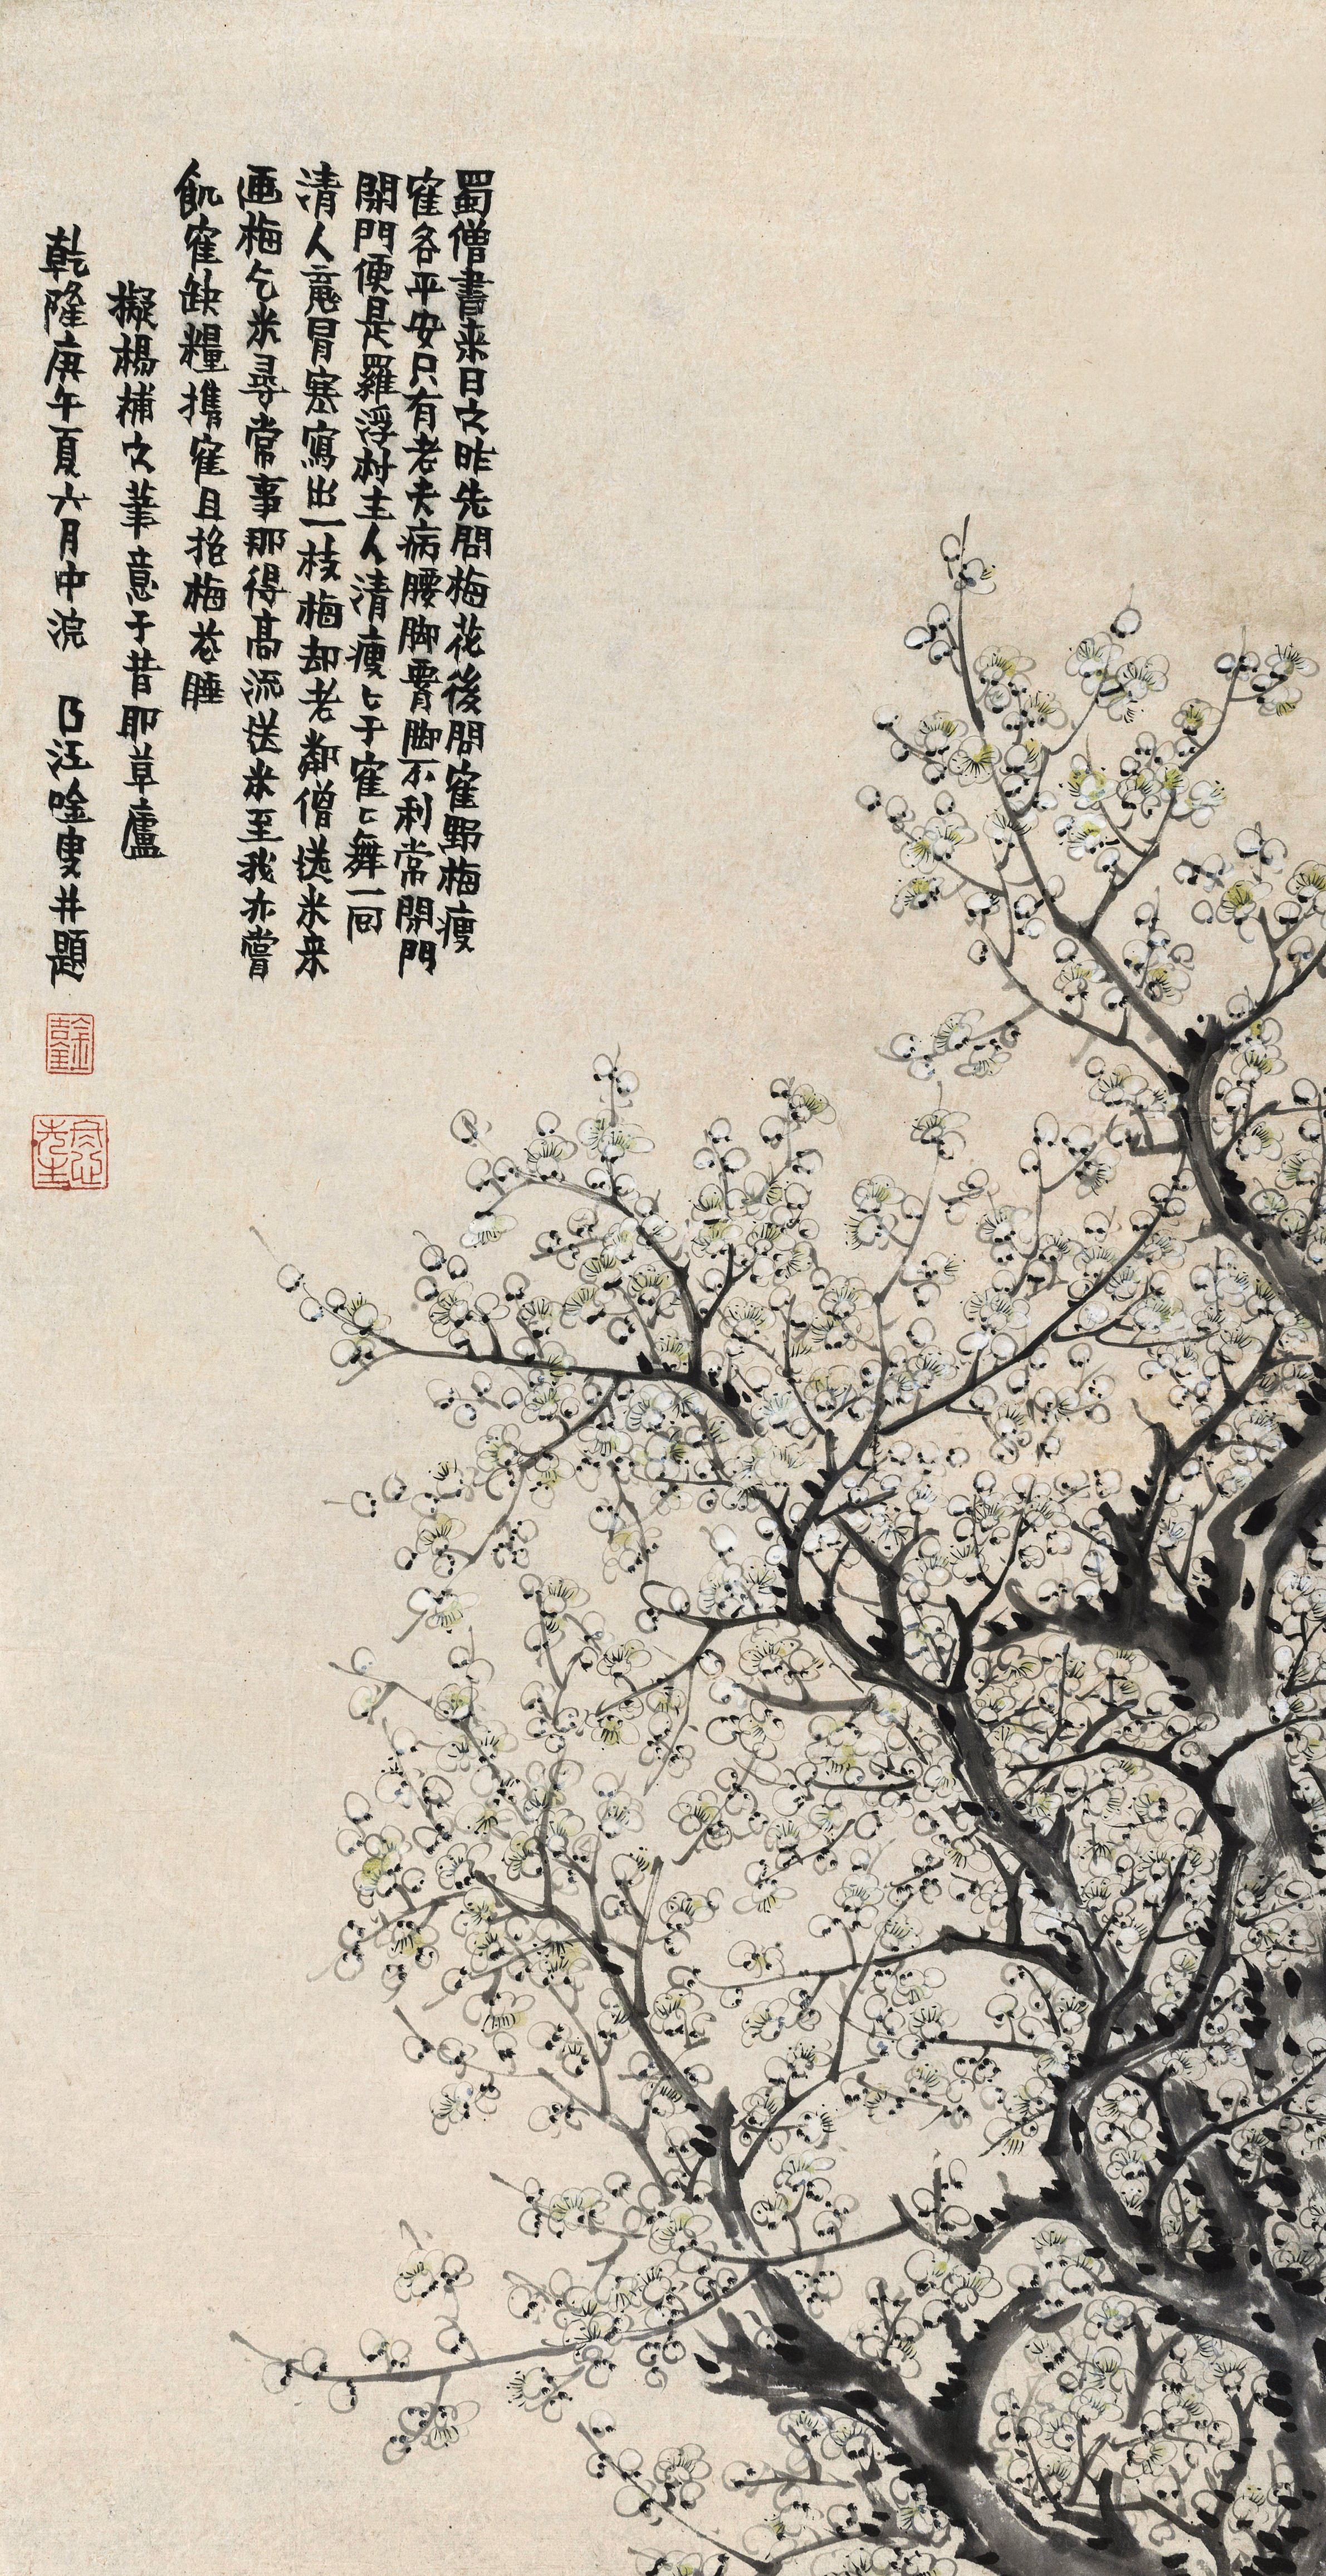 蜀僧書來日之昨先問梅花後問寉野梅瘦
寉各平安只有老夫病腰脚腰脚不利常閉門
閉門便是羅浮村主人清瘦〻于寉〻舞一回
清人意冒寒寫出一枝梅却老鄰僧送米來
画梅乞米尋常事那得高流送米至我亦嘗
飢寉缺糧携寉且抱梅花睡
擬楊補之筆意于昔耶草廬
乾隆庚午夏六月中浣 七十四叟金農并題
金吉金